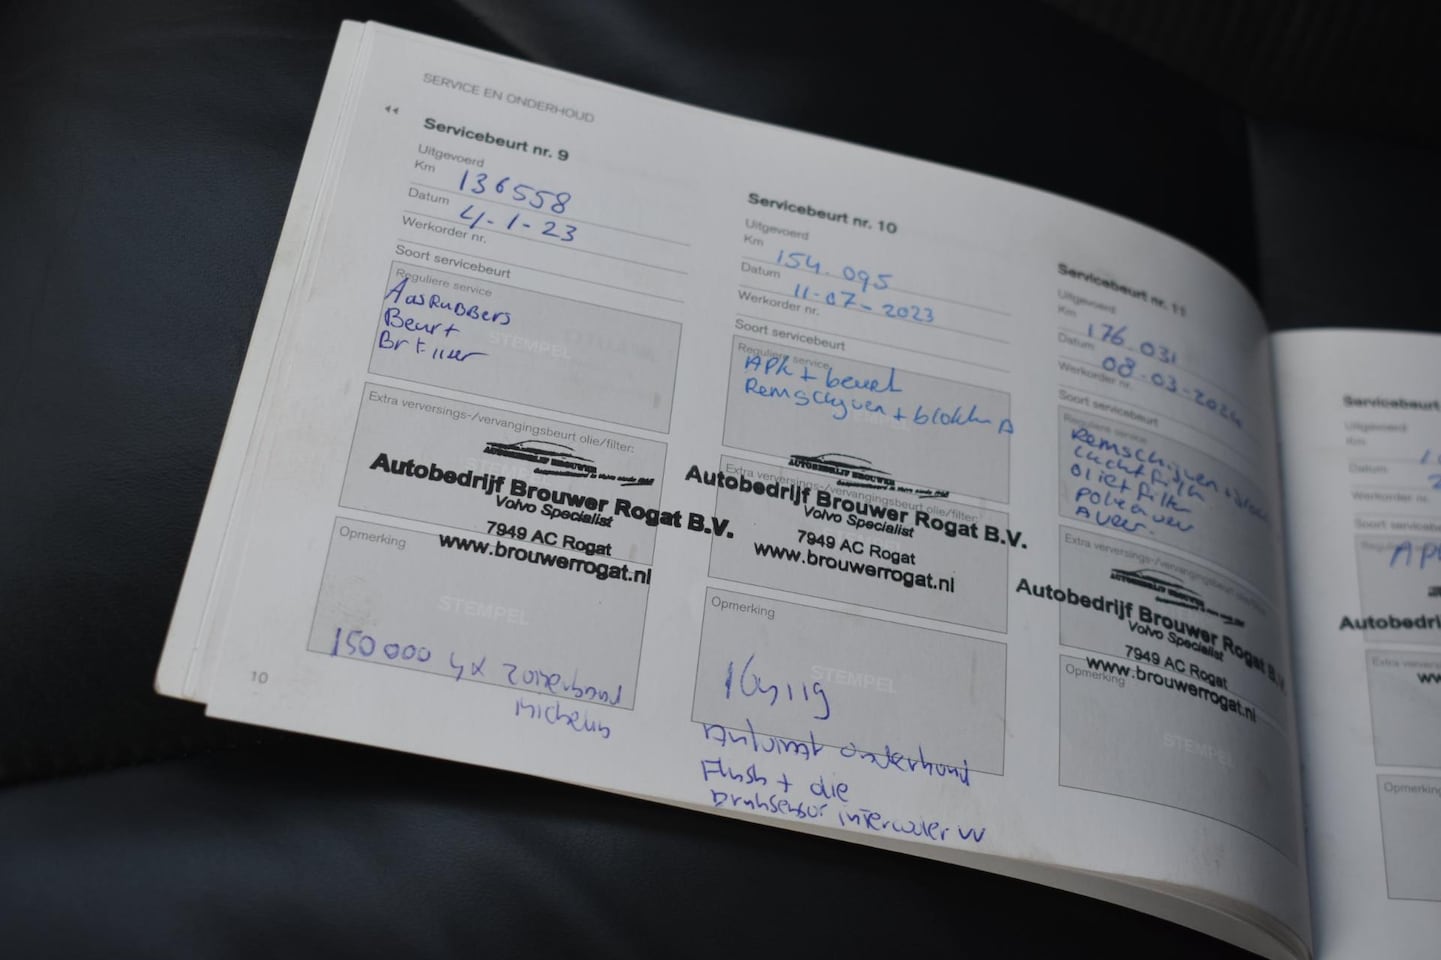 SERVICE EN ONDERHOUD
Servicebeurt nr. 9
Uitgevoerd
Km 136558
Datum 4-1-23
Werkorder nr.
Soort servicebeurt
Reguliere service
AsRubbers
Beurt
STEMPEL
Extra verversings-/vervangingsbeurt olie/filter:
AUTOBEDRIJF BROUWER
Autobedrijf Brouwer Rogat B.V.
Volvo Specialist
7949 AC Rogat
www.brouwerrogat.nl
Opmerking
STEMPEL
150000 4x
Michelin
10
Servicebeurt nr. 10
Uitgevoerd
Km 154.095
Datum 11-07-2023
Werkorder nr.
Soort servicebeurt
Reguliere service
APK + beurt
Remschijven + blokken A
Extra verversings-/vervangingsbeurt olie/filter:
AUTOBEDRIJF BROUWER
Autobedrijf Brouwer Rogat B.V.
Volvo Specialist
7949 AC Rogat
www.brouwerrogat.nl
Opmerking
STEMPEL
onderhoud
Flush + olie
Druksensor intercooler vv
Servicebeurt nr. 11
Uitgevoerd
Km 176.031
Datum 08-03-2024
Werkorder nr.
Soort servicebeurt
Reguliere service
Remschijven +
Luchtfilter
Oliefilter
Pollen
Extra verversings-/vervangingsbeurt
AUTOBEDRIJF BROUWER
Autobedrijf Brouwer Rogat B.V.
Volvo Specialist
7949 AC Rogat
www.brouwerrogat.nl
Opmerking
STEMPEL
Servicebeurt
Uitgevoerd
Km
Datum
Werkorder nr.
Soort servicebe
AP
Autobedri
Extra ververs
Opmerking